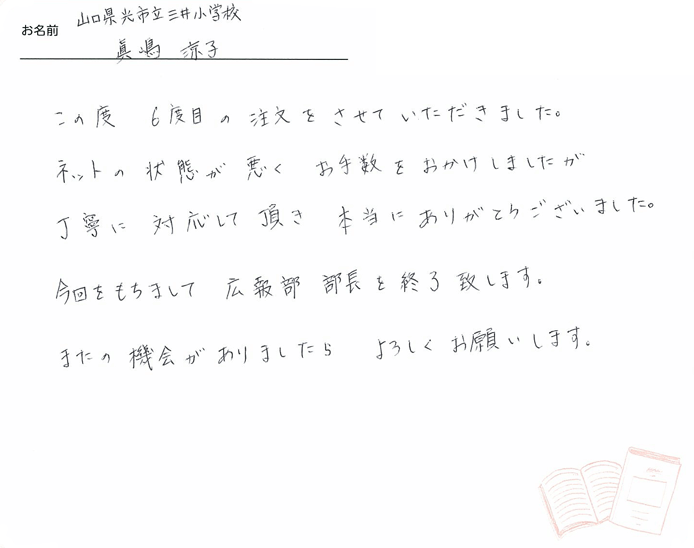 お名前 山口県光市立三井小学校
眞嶋 涼子
この度 6度目の注文をさせていただきました。
ネットの状態が悪く お手数をおかけしましたが
丁寧に対応して頂き 本当にありがとうございました。
今回をもちまして 広報部 部長を終了致します。
またの機会がありましたら よろしくお願いします。